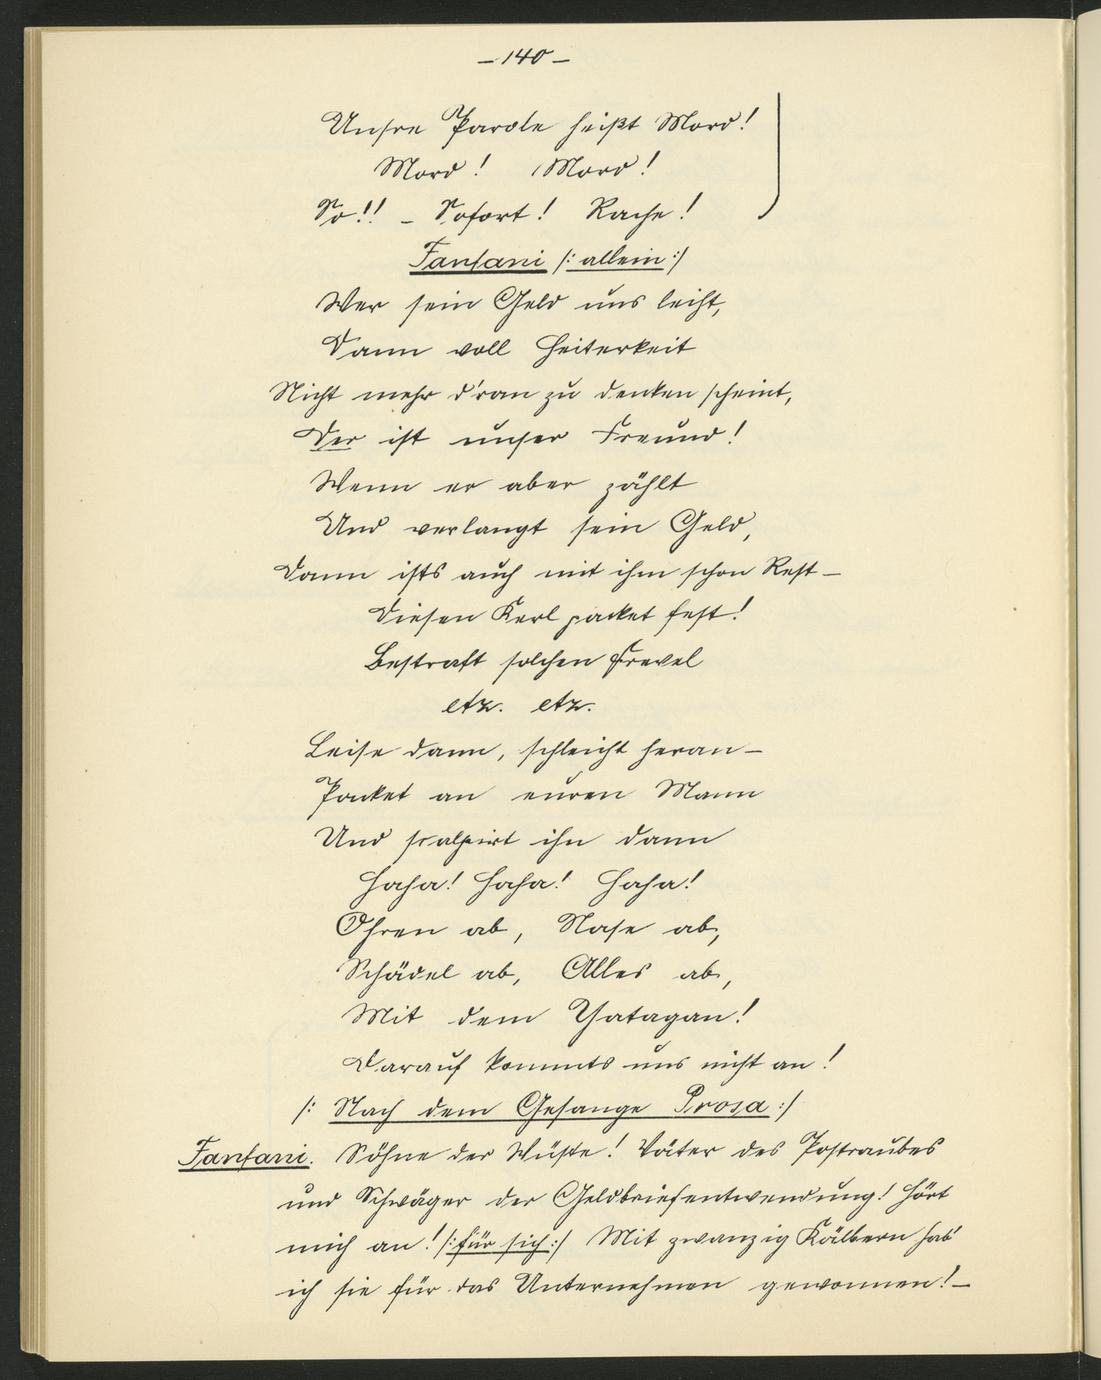 – 140 –
Unsre Parole heißt Mord!
Mord! Mord!
So!! – Sofort! Rache!
Fanfani /: allein :/
Wer sein Geld uns leiht,
Dann voll Heiterkeit
Nicht mehr d'ran zu denken scheint,
Der ist unser Freund!
Wenn er aber zählt
Und verlangt sein Geld,
Dann ists auch mit ihm schon Rest –
Diesen Kerl packet fest!
Bestraft solchen Frevel
etz. etz.
Leise dann, schleicht heran –
Packet an euren Mann
Und scalpirt ihn dann
Haha! Haha! Haha!
Ohren ab, Nase ab,
Schädel ab, Alles ab,
Mit dem Yatagan!
Darauf kommts uns nicht an!
/: Nach dem Gesange Prosa :/
Fanfani. Söhne der Wüste! Väter des Postraubes
und Schwäger der Geldbriefentwendung! Hört
mich an! /: für sich :/ Mit zwanzig Kälbern hab'
ich sie für das Unternehmen gewonnen! –